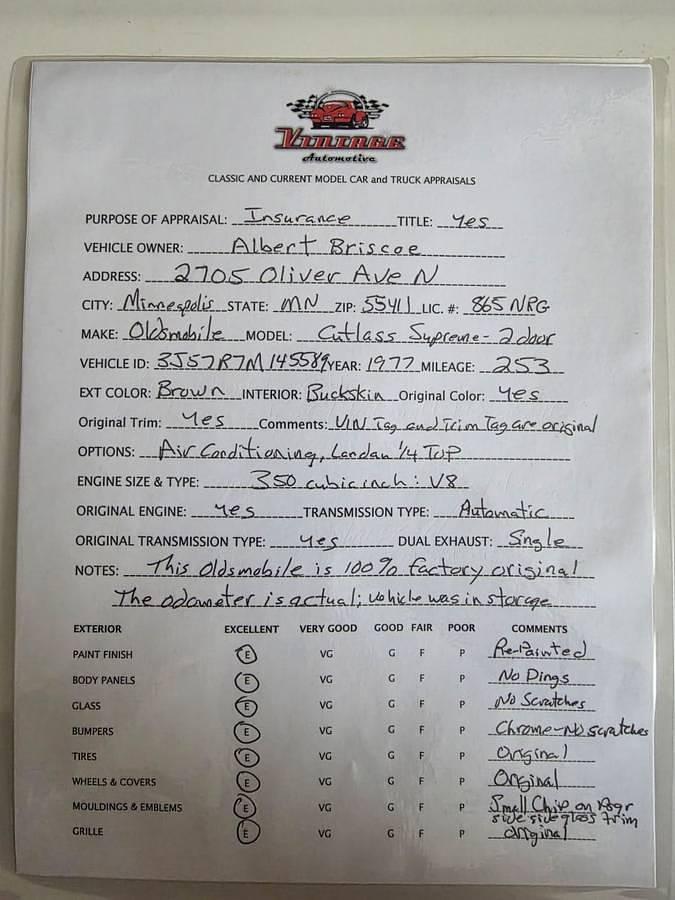 VINTAGE
Automotive
CLASSIC AND CURRENT MODEL CAR and TRUCK APPRAISALS
PURPOSE OF APPRAISAL: Insurance TITLE: Yes
VEHICLE OWNER: Albert Briscoe
ADDRESS: 2705 Oliver Ave N
CITY: Minneapolis STATE: MN ZIP: 55411 LIC. #: 865 NRG
MAKE: Oldsmobile MODEL: Cutlass Supreme - 2 door
VEHICLE ID: 3J57R7M145589 YEAR: 1977 MILEAGE: 253
EXT COLOR: Brown INTERIOR: Buckskin Original Color: Yes
Original Trim: Yes Comments: VIN Tag and Trim Tag are original
OPTIONS: Air Conditioning, Landau 1/4 Top
ENGINE SIZE & TYPE: 350 cubic inch: V8
ORIGINAL ENGINE: yes TRANSMISSION TYPE: Automatic
ORIGINAL TRANSMISSION TYPE: yes DUAL EXHAUST: Single
NOTES: This Oldsmobile is 100% factory original
The odometer is actual; vehicle was in storage
EXTERIOR EXCELLENT VERY GOOD GOOD FAIR POOR COMMENTS
PAINT FINISH E VG G F P Re-Painted
BODY PANELS E VG G F P No Dings
GLASS E VG G F P No Scratches
BUMPERS E VG G F P Chrome - No scratches
TIRES E VG G F P Original
WHEELS & COVERS E VG G F P Original
MOULDINGS & EMBLEMS E VG G F P Small Chip on
side side glass trim
GRILLE E VG G F P original